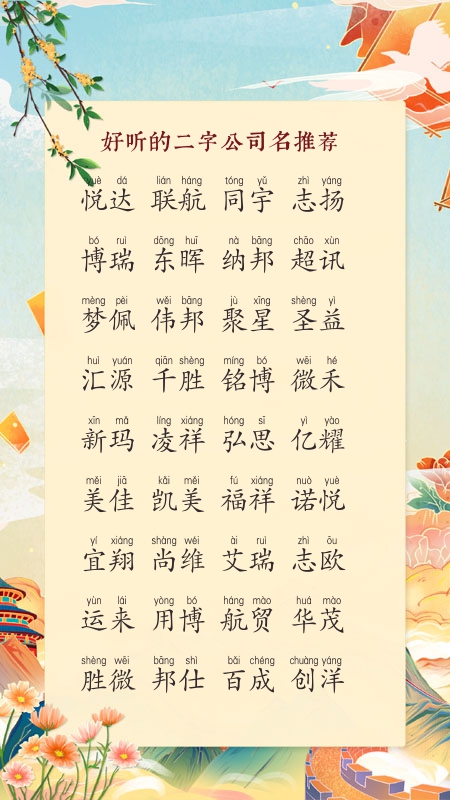 好听的二字公司名推荐
yuè dá lián háng tóng yǔ zhì yáng
悦达 联航 同宇 志扬
bó ruì dōng huī nà bāng chāo xùn
博瑞 东晖 纳邦 超讯
mèng pèi wěi bāng jù xīng shèng yì
梦佩 伟邦 聚星 圣益
huì yuán qiān shèng míng bó wēi hé
汇源 千胜 铭博 微禾
xīn mǎ líng xiáng hóng sī yì yào
新玛 凌祥 弘思 亿耀
měi jiā kǎi měi fú xiáng nuò yuè
美佳 凯美 福祥 诺悦
yí xiáng shàng wéi ài ruì zhì ōu
宜翔 尚维 艾瑞 志欧
yùn lái yòng bó háng mào huá mào
运来 用博 航贸 华茂
shèng wēi bāng shì bǎi chéng chuàng yáng
胜微 邦仕 百成 创洋